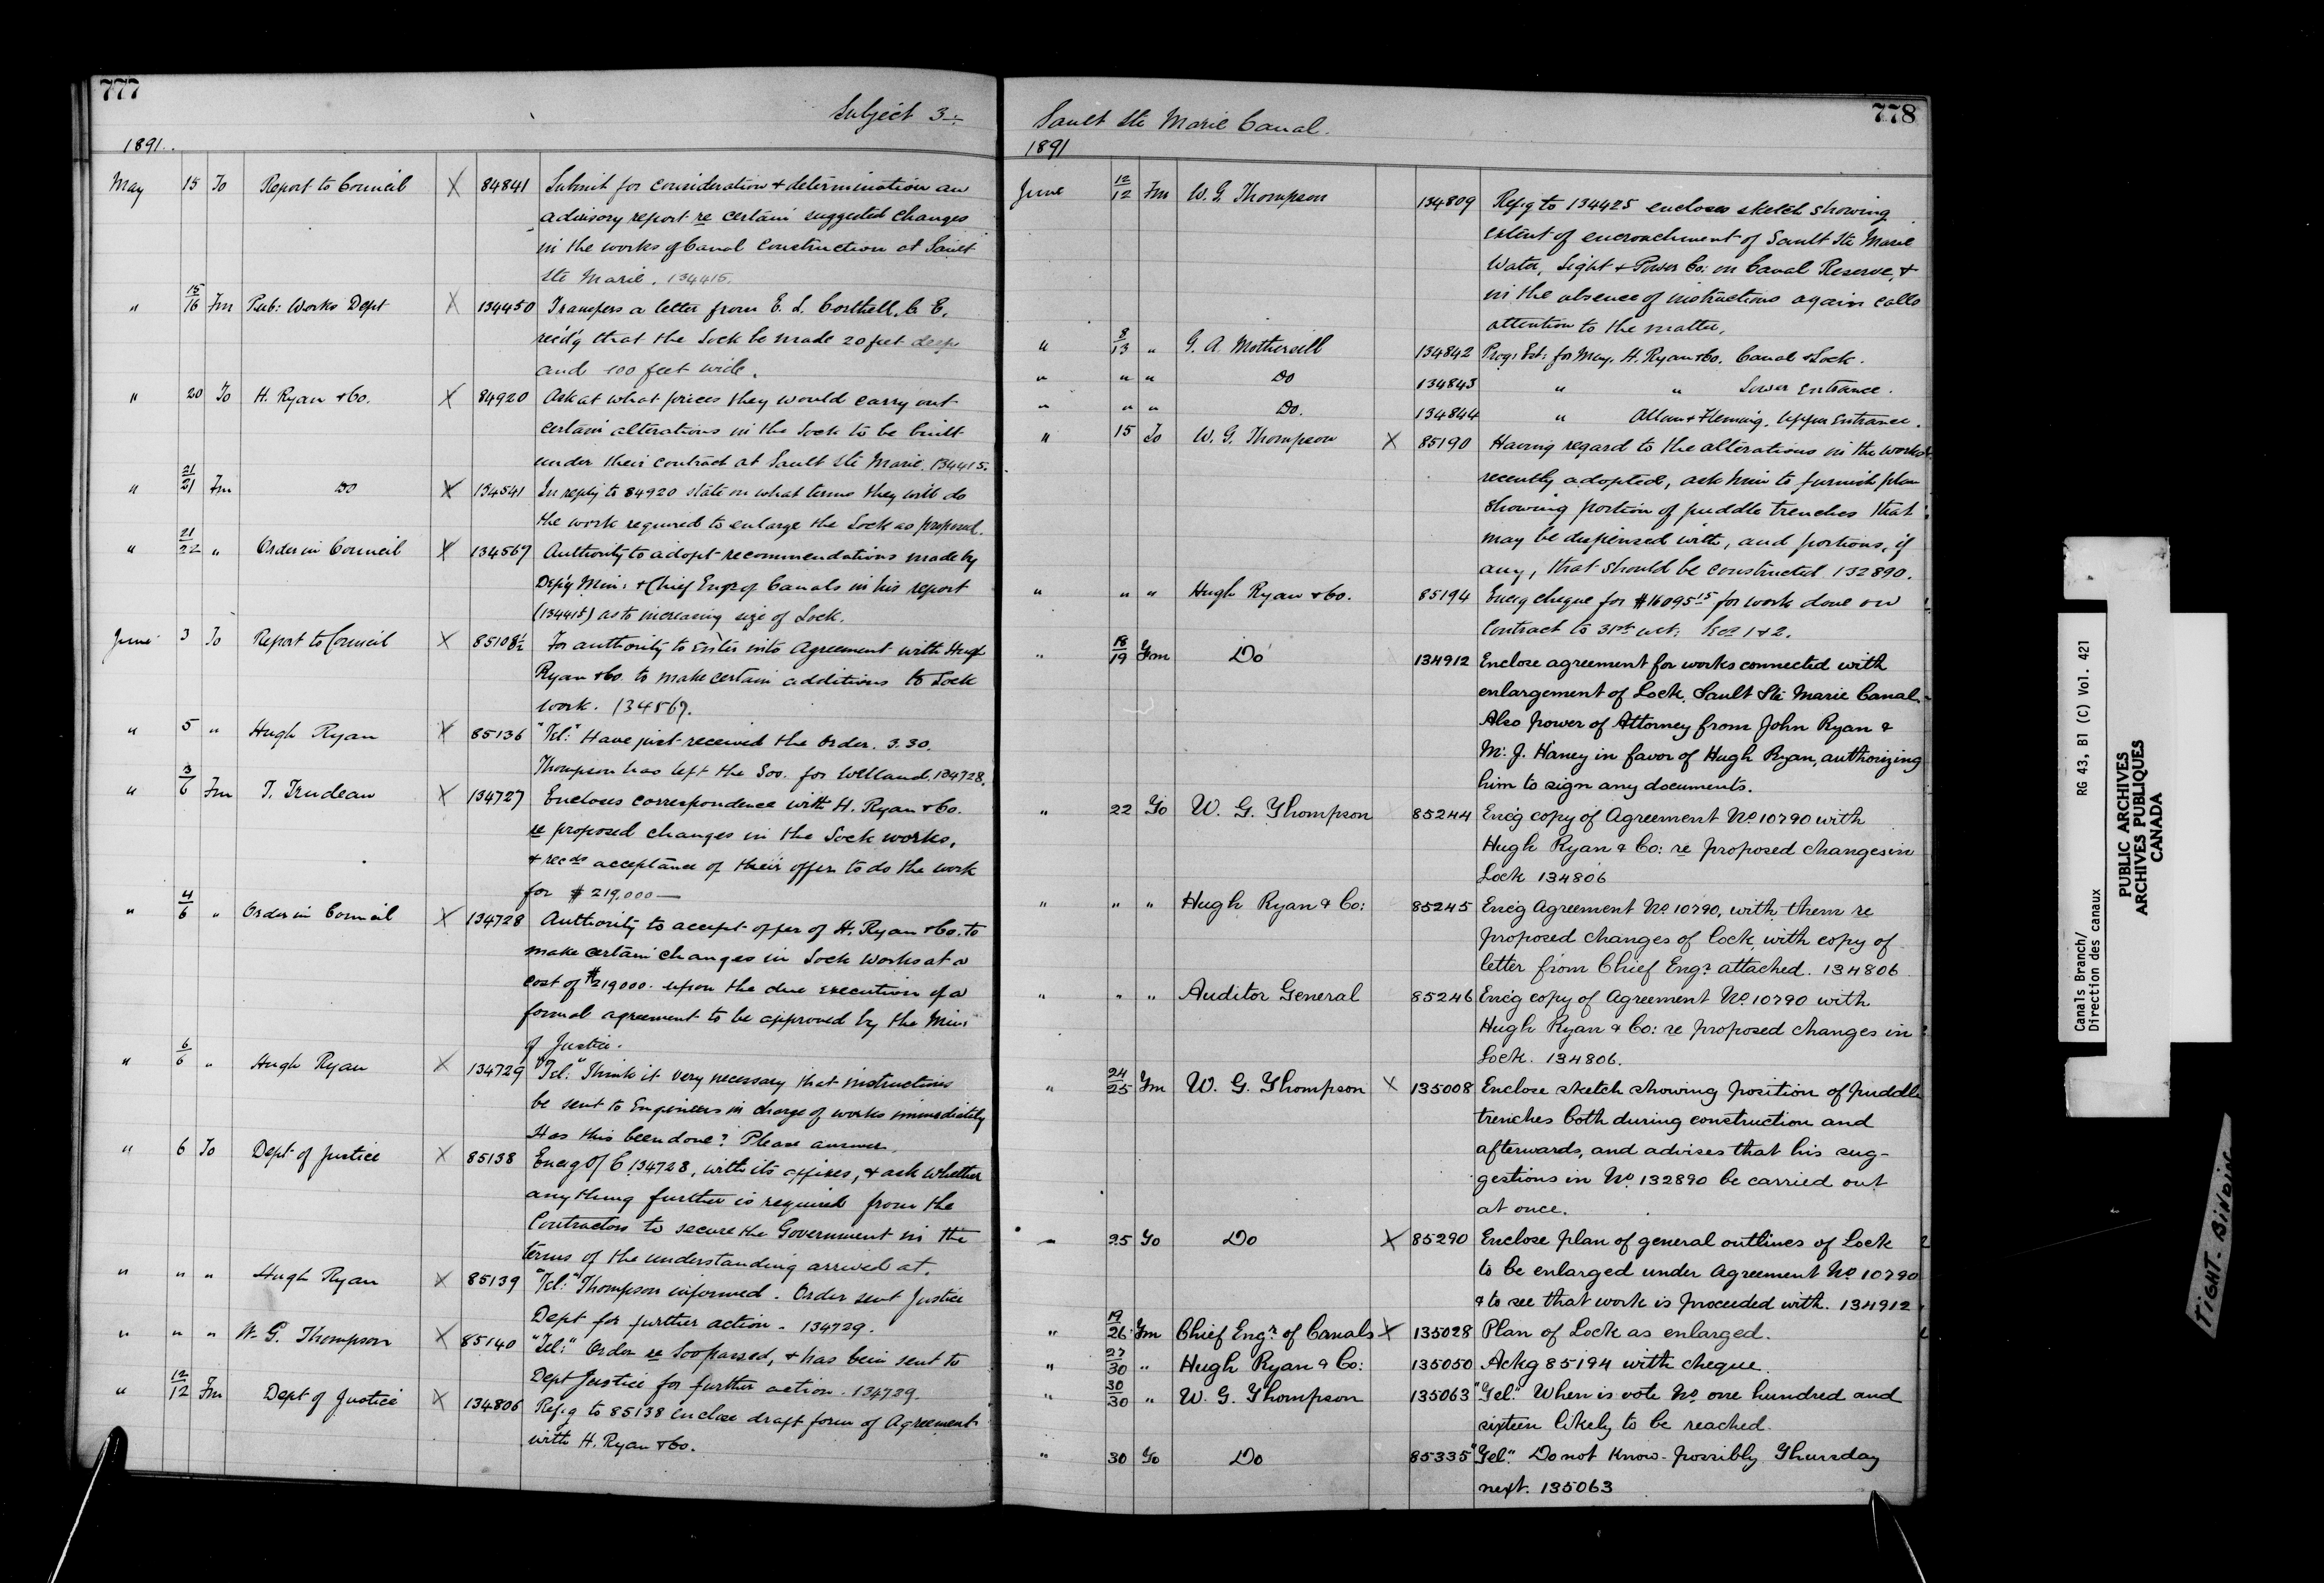 777
Subject 3
1891.
May 15 To Report to Council X 84841 Submit for consideration & determination an
advisory report re certain suggested changes
in the works of Canal Construction at Sault
Ste Marie. 134415.
" 15/16 Fm Pub: Works Dept X 134450 Transfers a letter from E. L. Corthell, C. E.
rec'd'g that the Lock be made 20 feet deep
and 100 feet wide.
" 20 To H. Ryan & Co. X 84920 Ask at what prices they would carry out
certain alterations in the Lock to be built
under their contract at Sault Ste Marie. 134415.
" 21/21 Fm Do X 134541 In reply to 84920 state on what terms they will do
the work required to enlarge the Lock as proposed.
" 21/22 " Order in Council X 134567 Authority to adopt recommendations made by
Dep'y Min: & Chief Engr of Canals in his report
(134415) as to increasing size of Lock.
June 3 To Report to Council X 85108½ For authority to enter into Agreement with Hugh
Ryan & Co. to make certain additions to Lock
work. 134567.
" 5 " Hugh Ryan X 85136 "Tel:" Have just received the Order. 3.30.
Thompson has left the Soo. for Welland. 134728.
" 3/6 Fm T. Trudeau X 134727 Encloses correspondence with H. Ryan & Co.
re proposed changes in the Lock works,
& recds acceptance of their offer to do the work
for $219,000—
" 4/6 " Order in Council X 134728 Authority to accept offer of H. Ryan & Co. to
make certain changes in Lock works at a
cost of $219000. upon the due execution of a
formal agreement to be approved by the Min:
of Justice.
" 6/6 " Hugh Ryan X 134729 "Tel:" Think it very necessary that instructions
be sent to Engineers in charge of works immediately
Has this been done? Please answer.
" 6 To Dept of Justice X 85138 Encg O/C 134728, with its affixes, & ask whether
anything further is required from the
Contractors to secure the Government in the
terms of the understanding arrived at.
" " " Hugh Ryan X 85139 "Tel:" Thompson informed. Order sent Justice
Dept for further action. 134729.
" " " W. G. Thompson X 85140 "Tel:" Order re Soo passed, & has been sent to
Dept Justice for further action. 134729.
" 12/12 Fm Dept of Justice X 134806 Refg to 85138 enclose draft form of Agreement
with H. Ryan & Co.
778
Sault Ste Marie Canal.
1891
June 12/12 Fm W. G. Thompson 134809 Refg to 134425 encloses sketch showing
extent of encroachment of Sault Ste Marie
Water, Light & Power Co: on Canal Reserve, &
in the absence of instructions again calls
attention to the matter.
" 8/13 " G. A. Mothersill 134842 Prog: Est: for May, H. Ryan & Co. Canal & Lock.
" " " Do 134843 " " Lower Entrance.
" " " Do. 134844 " Allan & Fleming. Upper Entrance.
" 15 To W. G. Thompson X 85190 Having regard to the alterations in the works
recently adopted, ask him to furnish plan
showing portion of puddle trenches that
may be dispensed with, and portions, if
any, that should be constructed 132890.
" " " Hugh Ryan & Co. 85194 Encg cheque for $16095.15 for work done on
Contract to 31st ult: Secs 1 & 2.
" 18/19 Fm Do 134912 Enclose agreement for works connected with
enlargement of Lock, Sault Ste Marie Canal.
Also power of Attorney from John Ryan &
M. J. Haney in favor of Hugh Ryan, authorizing
him to sign any documents.
" 22 To W. G. Thompson 85244 Enc'g copy of Agreement No 10790 with
Hugh Ryan & Co: re proposed changes in
Lock 134806
" " " Hugh Ryan & Co: 85245 Enc'g Agreement No 10790, with them re
proposed changes of Lock, with copy of
letter from Chief Engr attached. 134806
" " " Auditor General 85246 Enc'g copy of Agreement No 10790 with
Hugh Ryan & Co: re proposed changes in
Lock. 134806.
" 24/25 Fm W. G. Thompson X 135008 Enclose sketch showing position of puddle
trenches both during construction and
afterwards, and advises that his sug-
gestions in No 132890 be carried out
at once.
" 25 To Do X 85290 Enclose plan of general outlines of Lock
to be enlarged under Agreement No 10790
& to see that work is proceeded with. 134912
" 19/26 Fm Chief Engr of Canals X 135028 Plan of Lock as enlarged.
" 27/30 " Hugh Ryan & Co: 135050 Ackg 85194 with cheque.
" 30/30 " W. G. Thompson 135063 "Tel." When is vote No one hundred and
sixteen likely to be reached.
" 30 To Do 85335 "Tel." Do not know. possibly Thursday
next. 135063
Canals Branch/ RG 43, B1 (C) Vol. 421
Direction des canaux
PUBLIC ARCHIVES
ARCHIVES PUBLIQUES
CANADA
TIGHT-BINDING